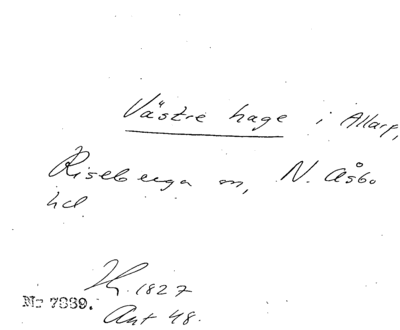 Västre hage i Allarp,
Riseberga sn, N. Åsbo
hd.
1827
No 7839.
Akt 48.